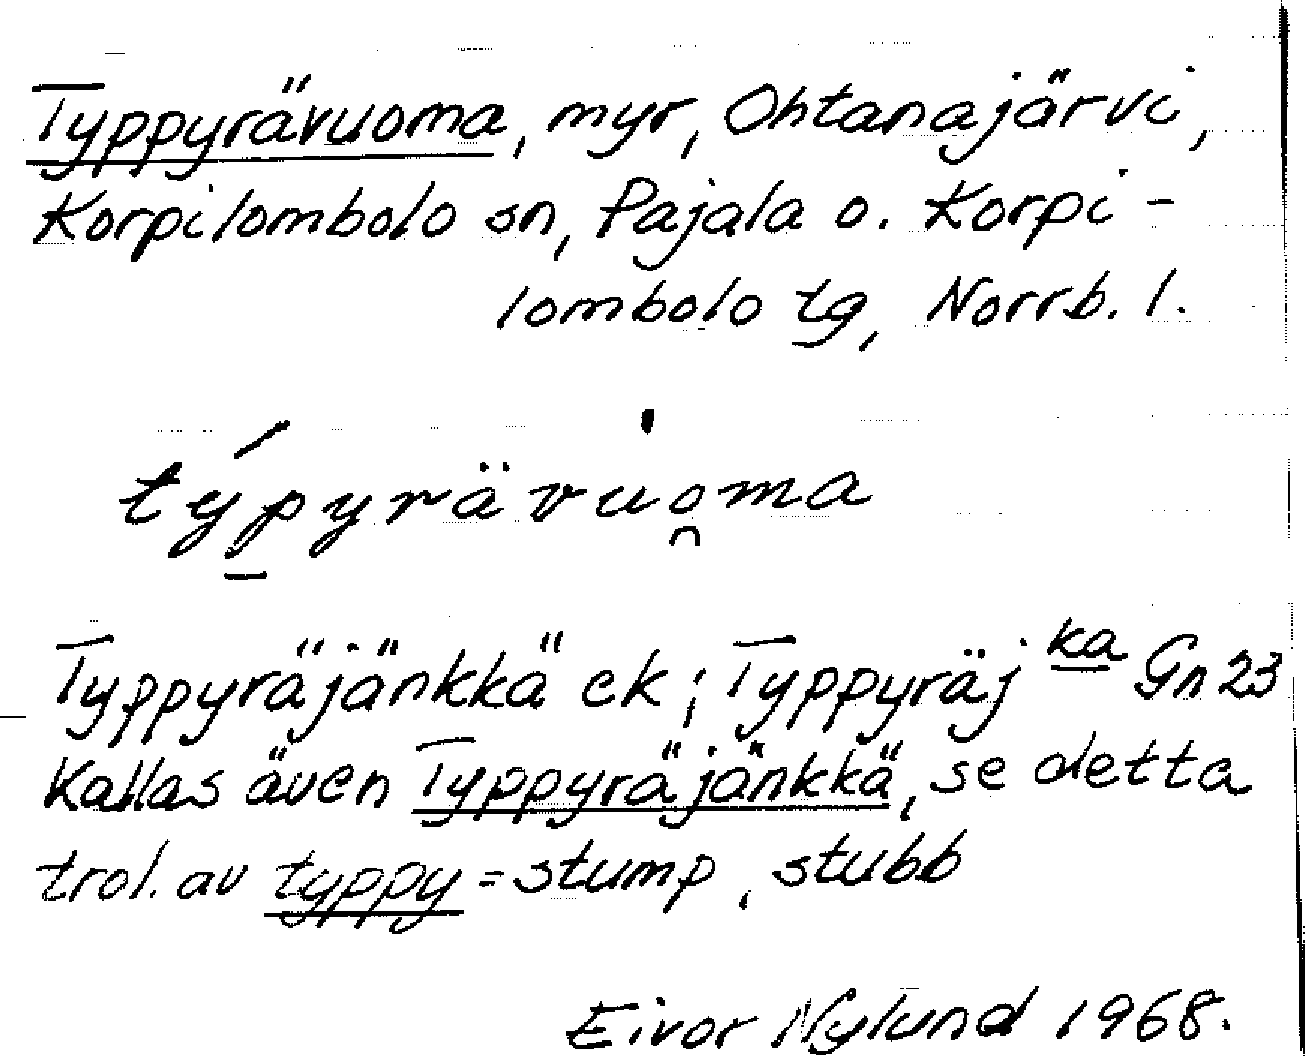 Typpyrävuoma, myr, Ohtanajärvi,
Korpilombolo sn, Pajala o. Korpi-
lombolo tg, Norrb. l.
typyrävuoma
Typpyräjänkkä ek; Typpyräj ka Gn 23
Kallas även Typpyräjänkkä, se detta
trol. av typpy = stump, stubb
Eivor Nylund 1968.